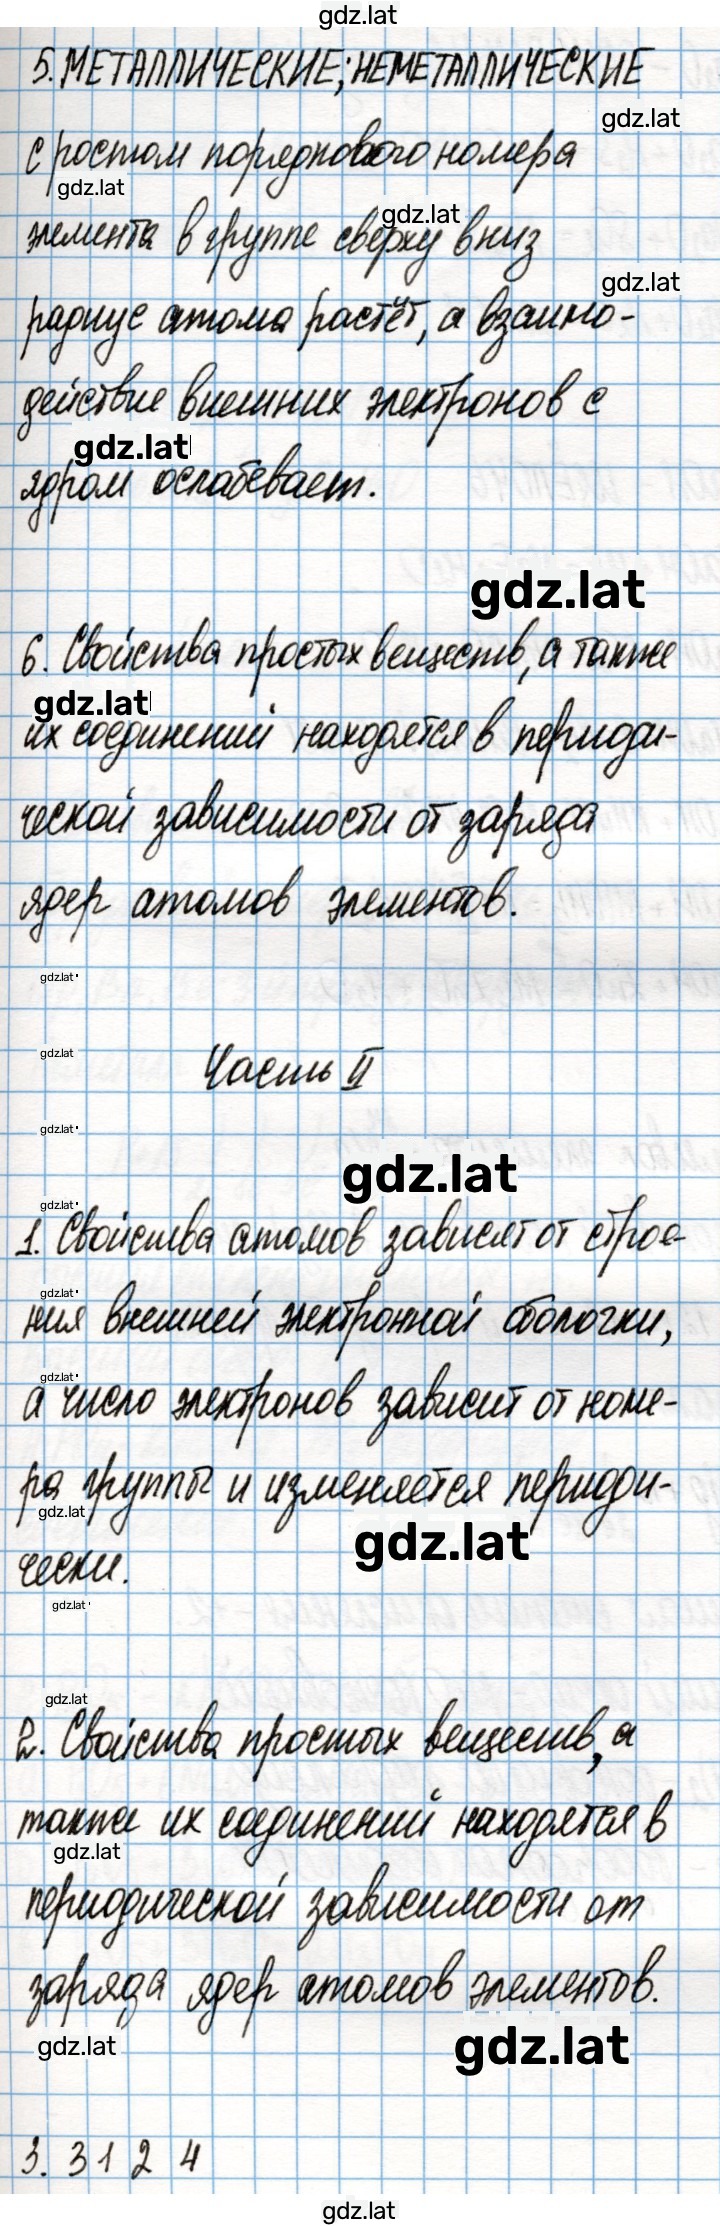 gdz.lat
5. МЕТАЛЛИЧЕСКИЕ; НЕМЕТАЛЛИЧЕСКИЕ
gdz.lat
с ростом порядкового номера
gdz.lat
gdz.lat
элемента в группе сверху вниз
gdz.lat
радиус атома растёт, а взаимо-
действие внешних электронов с
gdz.lat
ядром ослабевает.
gdz.lat
6. Свойства простых веществ, а также
gdz.lat
их соединений находятся в периоди-
ческой зависимости от заряда
ядер атомов элементов.
gdz.lat
gdz.lat
Часть II
gdz.lat
gdz.lat
gdz.lat
1. Свойства атомов зависят от строе-
gdz.lat
ния внешней электронной оболочки,
gdz.lat
а число электронов зависит от номе-
ра группы и изменяется периоди-
gdz.lat
gdz.lat
чески.
gdz.lat
gdz.lat
2. Свойства простых веществ, а
также их соединений находятся в
gdz.lat
периодической зависимости от
заряда ядер атомов элементов.
gdz.lat
gdz.lat
3. 3 1 2 4
gdz.lat